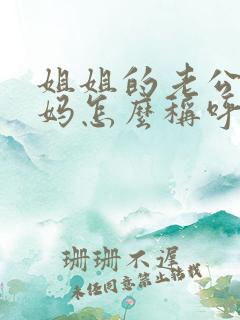 姐姐的老公
妈怎麼稱呼
珊珊不遲
未经同意禁止转载